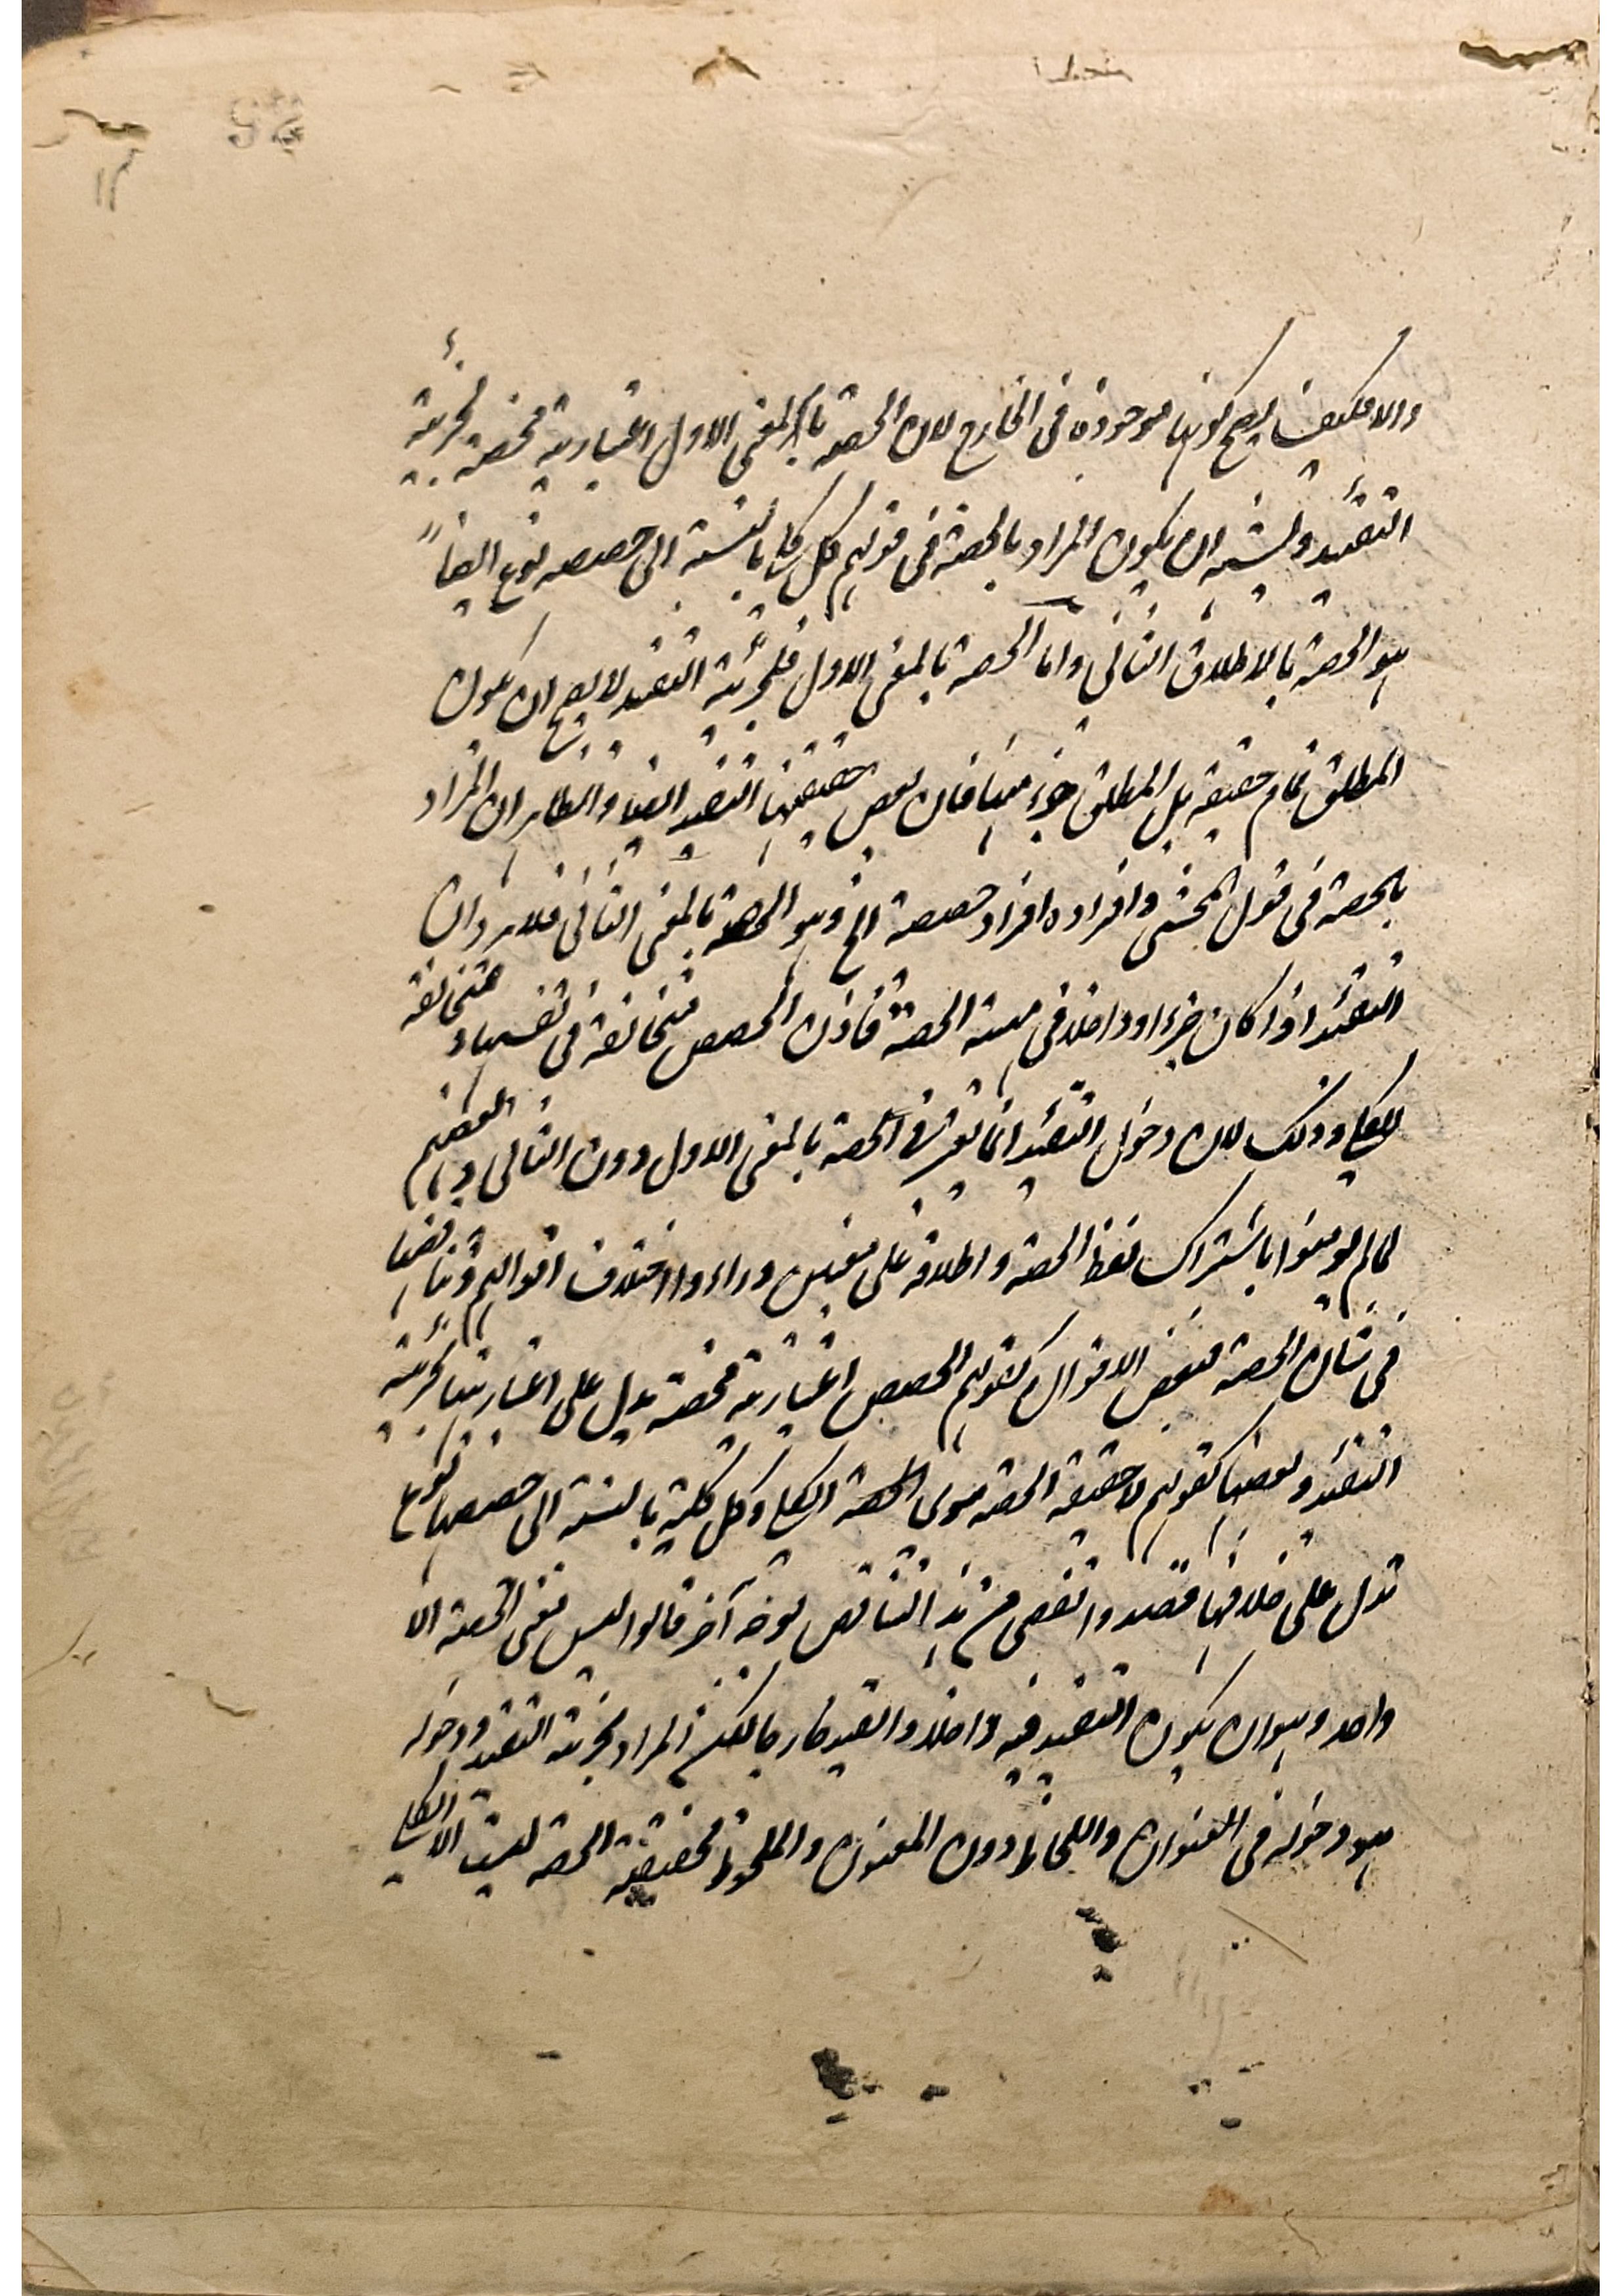 والا فكيف يصح كونها موجودة في الخارج لان الحصة بالمعنى الاول اعتبارية محضة لجزئية
التقئيد ويشبه ان يكون المراد بالحصة في قولهم كل كلي بالنسبة الى حصصه نوع ايضاً
هو الحصة بالاطلاق الثاني واما الحصة بالمعنى الاول فلجزئية التقئيد لا يصح ان يكون
المطلق تمام حقيقته بل المطلق جزء منها فان بعض حقيقتها التقئيد ايضا والظاهر ان المراد
بالحصة في قول المحشي وافراده افراد حصصه الخ هو الحصة بالمعنى الثاني فلا يرد ان
التقئيد اذا كان جزء او داخلا في مهية الحصة فاذن الحصص متخالفة في نفسها ومتخالفة
للكلي وذلك لان دخول التقئيد انما يؤثر في الحصة بالمعنى الاول دون الثاني وبعضهم
لما لم يومنوا باشتراك لفظ الحصة واطلاقه على معنيين وراءوا اختلاف اقوالهم وتناقضها
في شان الحصة فبعض الاقوال كقولهم الحصص اعتبارية محضة يدل على اعتباريتها لجزئية
التقئيد وبعضها كقولهم لا حقيقة الحصة سوى الحصة الكلي وكل كلية بالنسبة الى حصصها نوع
تدل على خلافها قصدوا تفصي من هذا التناقص بوجه آخر قالوا ليس معنى الحصة الا
واحد وهو ان يكون التقئيد فيه داخلا والقيد خارجا لكن المراد بجزئية التقئيد ودخوله
هو دخوله في العنوان واللحاظ دون المعنون والملحوظ فحقيقة الحصة ليست الا الكلي